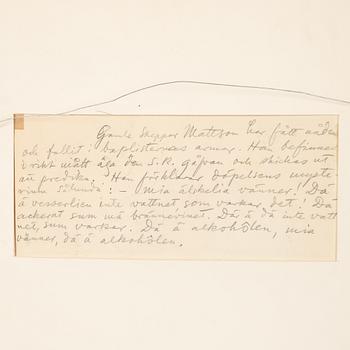 Gamle Skeppar Mattson har fått nåden
och fallit i baptisternes armar. Han befinner
i rikt mått äga den S.K. gåfvan och skickas ut
att predika. Han förklarar döpelsens myste-
rium sålunda: – mia älskelia vänner! Dä
ä vesserlien inte vattnet som varkar det! Dä
ackerat sum mä brännevinet. Dä ä då inte vatt
net, sum varkar. Dä ä alkohölen, mia
vänner, dä ä alkohölen.